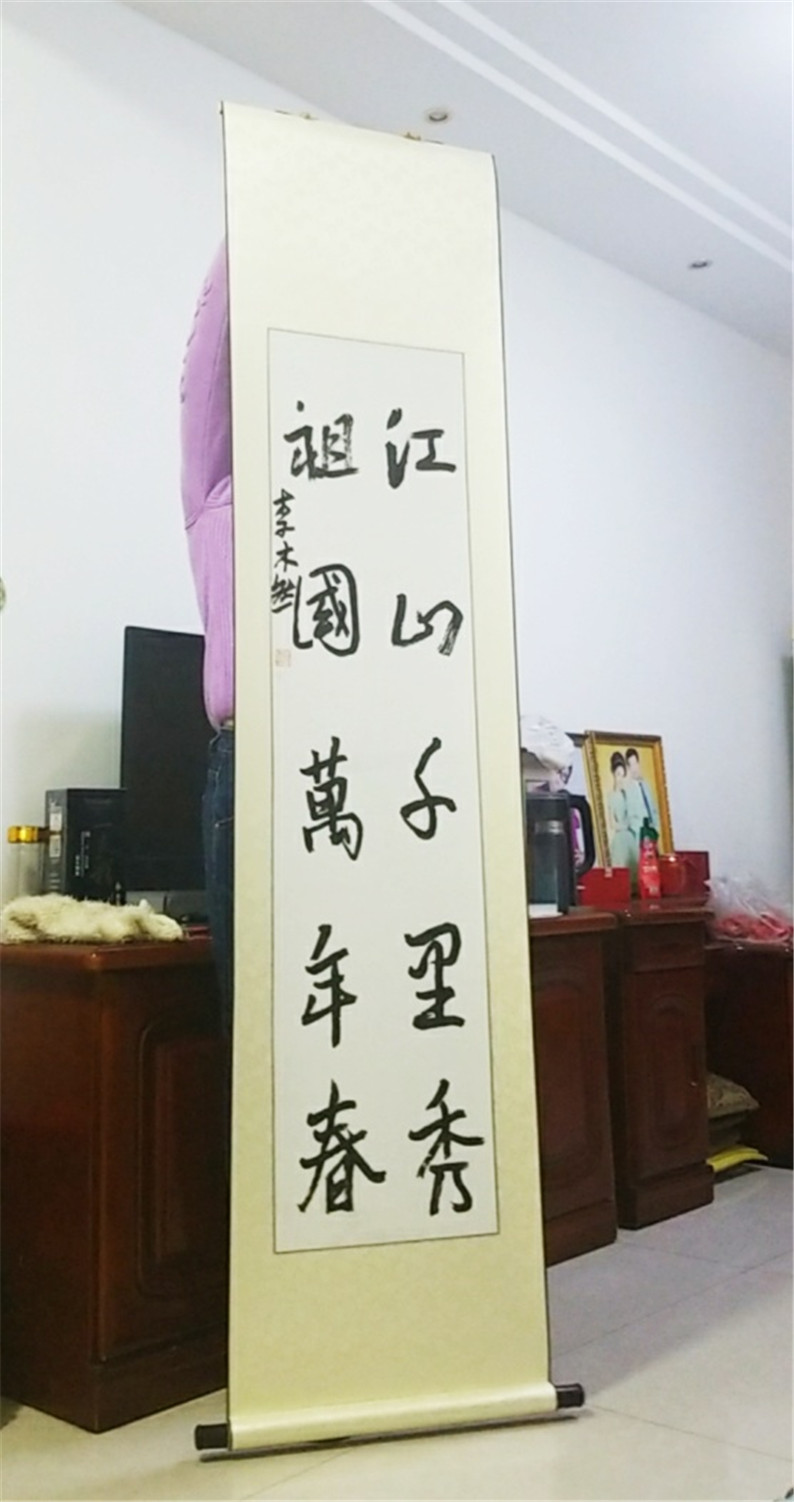 江山千里秀
祖國萬年春
李木然